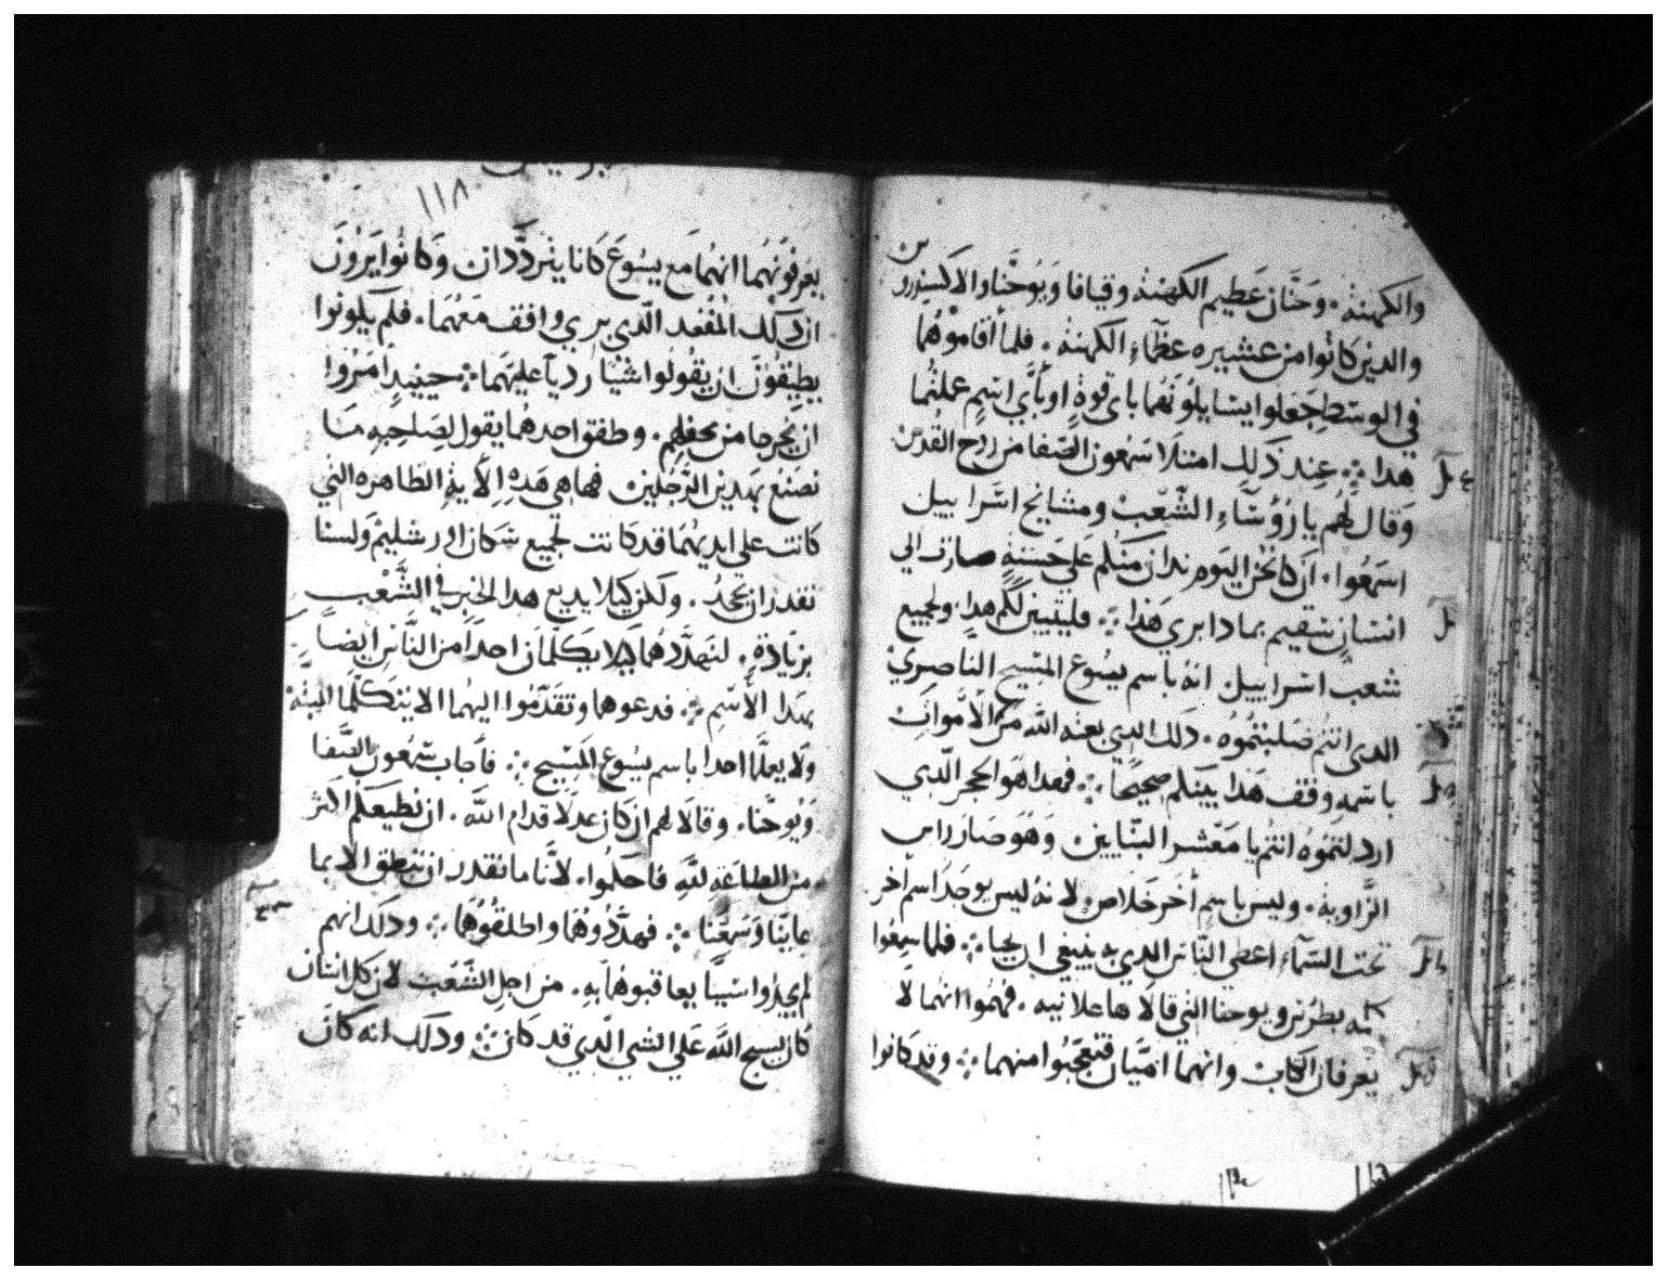 والكهنة. وحنان عظيم الكهنة وقيافا ويوحنا والاكسندر
والدين كانوا من عشيره عظماء الكهنة. فلما أقاموهما
في الوسط جعلوا يسايلونهما باي قوة او بأي اسم عملتما
هدا ܀ عند ذلك امتلا سمعون الصفا من روح القدس
وقال لهم يا رؤساء الشعب ومشايخ اسرابيل
اسمعوا. ان كا نحن اليوم ندان منكم علي حسنة صارت الي
انسان سقيم بمادا بري هذا ܀ فليتبين لكم هدا ولجميع
شعب اسرابيل انه باسم يسوع المسيح الناصري
الدي انتم صلبتموه. دلك الدي بعثه الله من الأموات
باسمه وقف هدا بينكم صحيحا ܀ فهدا هو الحجر الدي
اردلتموه انتم يا معشر البنايين وهو صار راس
الزاوية. وليس باسم أخر خلاص لانه ليس يوجد اسم أخر
تحت السماء اعطي الناس الدي به ينبغي ان يحيا ܀ فلما سمعوا
بطرس ويوحنا التي قالاها علانيه. فهموا انهما لا
يعرفان الكتاب وانهما اميان فتعجبوا منهما ܀ وقد كانوا
١١٨
يعرفونهما انهما مع يسوع كانا يترددان وكانوا يرون
ان دلك المقعد الدي بري واقف معهما. فلم يكونوا
يطيقون ان يقولوا شيا رديا عليهما ܀ حينيد امروا
ان يخرجا من محفلهم. وطفق احدهما يقول لصاحبه ما
نصنع بهدين الرجلين فها هي هده الأية الظاهره التي
كانت علي ايديهما قد كانت لجميع سكان اورشليم ولسنا
نقدر ان نجحد. ولكن كيلا يديع هدا الخبر في الشعب
بزيادة. لنتهددهما كيلا يكلمان احدا من الناس ايضا
بهدا الأسم ܀ فدعوهما وتقدموا اليهما الا يتكلما البتة
ولا يعلما احدا باسم يسوع المسيح ܀ فأجاب سمعون الصفا
ويوحنا. وقالا لهم ان كان عدلا قدام الله. ان نطيعكم اكثر
من الطاعة لله فاحكموا. لأنا ما نقدر ان ننطق الا بما
عاينا وسمعنا ܀ فهددوهما واطلقوهما ܀ ودلك انهم
لم يجدوا سببا يعاقبوهما به. من اجل الشعب لان كل انسان
كان يسبح الله علي الشي الدي قد كان ܀ ودلك انه كان